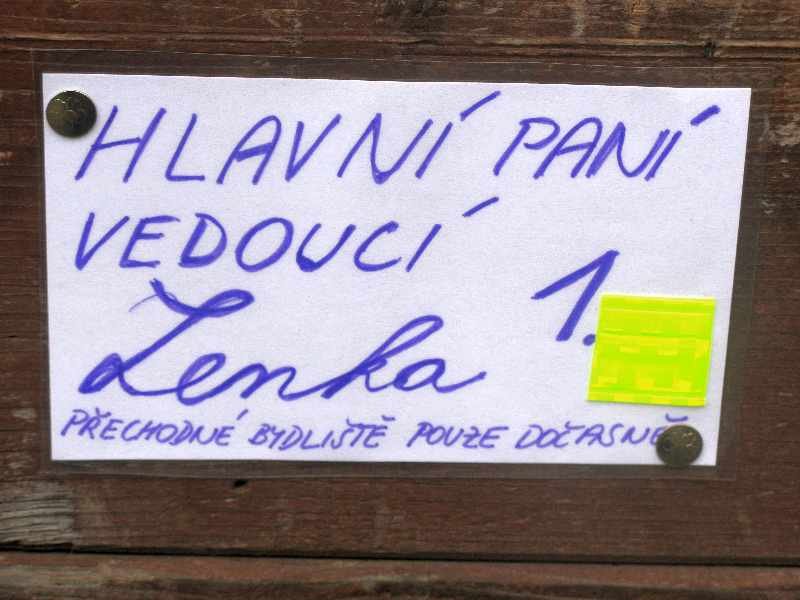 HLAVNÍ PANÍ
VEDOUCÍ
1.
Lenka
PŘECHODNÉ BYDLIŠTĚ POUZE DOČASNĚ